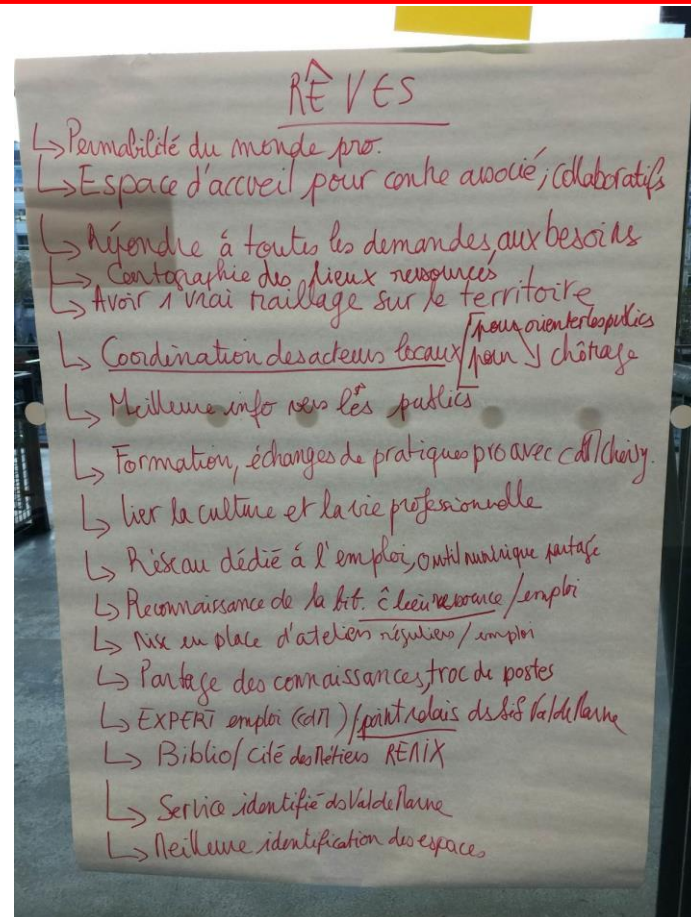 RÊVES
↳ Permabilité du monde pro.
↳ Espace d'accueil pour contre associé, collaboratifs
↳ Répondre à toutes les demandes, aux besoins
↳ Cartographie des lieux ressources
↳ Avoir 1 vrai maillage sur le territoire
[pour orienter les publics
↳ Coordination des acteurs locaux [pour ↘ chômage
↳ Meilleure info vers les publics
↳ Formation, échanges de pratiques pro avec cdm choisy.
↳ lier la culture et la vie professionnelle
↳ Réseau dédié à l'emploi, outil numérique partagé
↳ Reconnaissance de la bib. ê lieu ressource / emploi
↳ Mise en place d'ateliers réguliers / emploi
↳ Partage des connaissances, troc de postes
↳ EXPERT emploi (cdM) / point relais ds bib Val de Marne
↳ Biblio / cité des Métiers REMIX
↳ Service identifié ds Val de Marne
↳ Meilleure identification des espaces